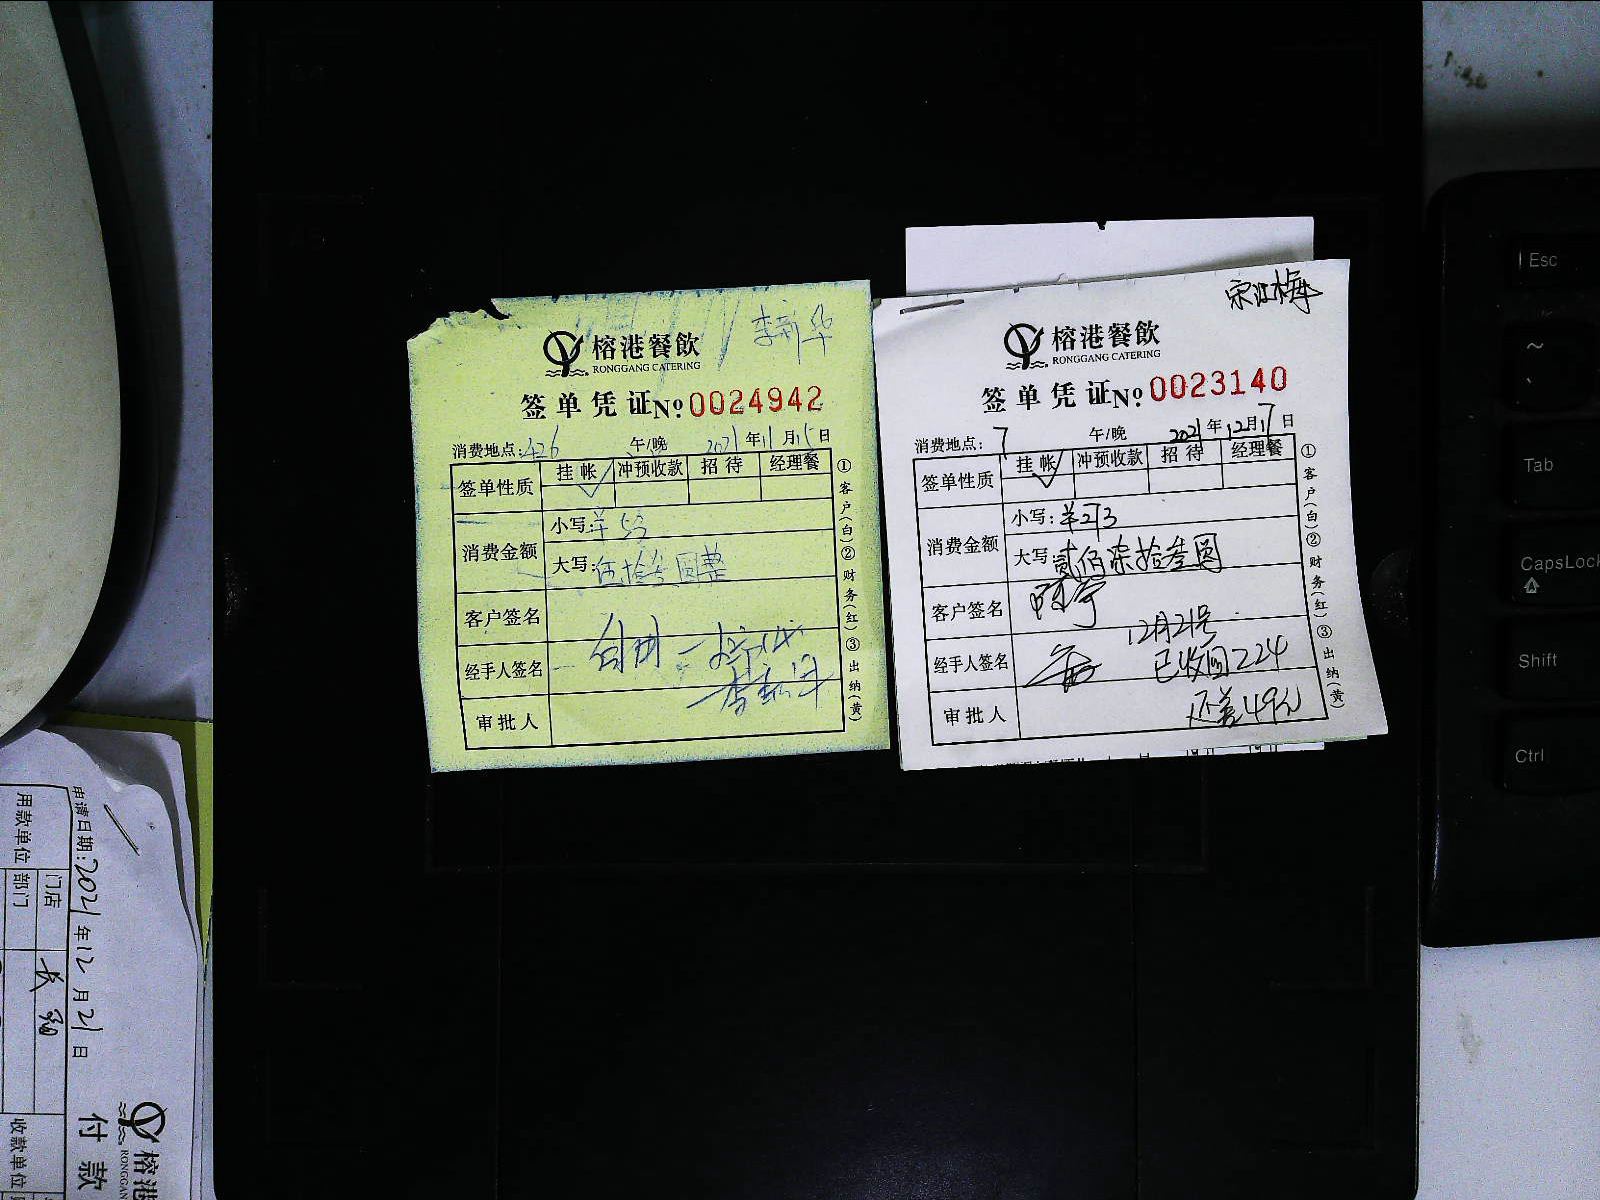 李新华
榕港餐飲
RONGGANG CATERING
签单凭证 № 0024942
消费地点: 426 午/晚 2021年11月15日
签单性质 挂帐 冲预收款 招待 经理餐
✓
消费金额 小写: 羊53
大写: 伍拾叁圆整
客户签名
经手人签名
审批人
①客户(白)②财务(红)③出纳(黄)
宋江梅
榕港餐飲
RONGGANG CATERING
签单凭证 № 0023140
消费地点: 7 午/晚 2021年12月17日
签单性质 挂帐 冲预收款 招待 经理餐
✓
消费金额 小写: 羊273
大写: 贰佰柒拾叁圆
客户签名
12月21号
经手人签名 已收回224
审批人 还差49元
①客户(白)②财务(红)③出纳(黄)
榕港
付款
申请日期: 2021年12月21日
用款单位 门店
部门
收款单位
Esc
~
Tab
CapsLock
Shift
Ctrl